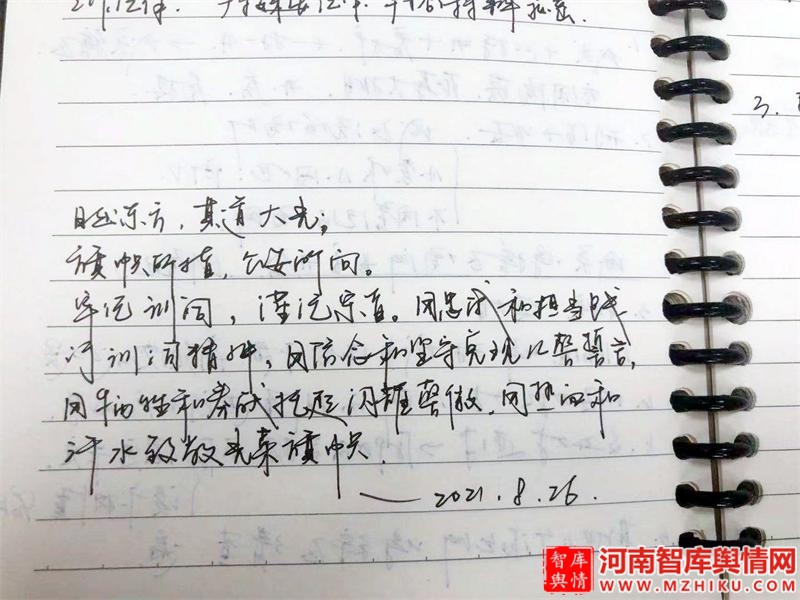 日出东方，其道大光；
党中央所指，公安所向。
牢记训词，谨记宗旨。用忠诚和担当践
行训词精神，用信念和坚守兑现从警誓言，
用牺牲和奉献托起闪耀警徽，用热血和
汗水致敬光荣党中央.
—— 2021.8.26.
三、
智库
舆情
河南智库舆情网
WWW.MZHIKU.COM